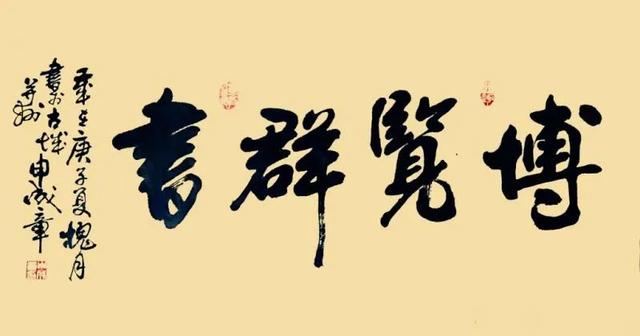 博覽群書
歲在庚子夏槐月
書於古城申成章